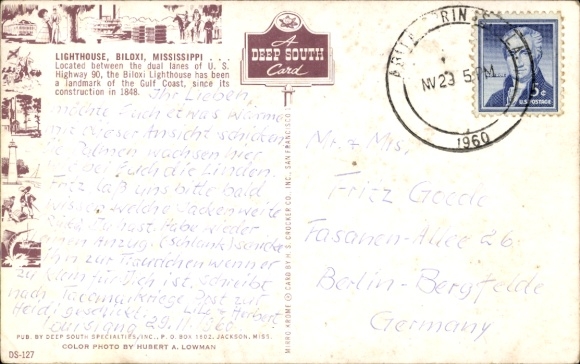 LIGHTHOUSE, BILOXI, MISSISSIPPI . . .
Located between the dual lanes of U. S.
Highway 90, the Biloxi Lighthouse has been
a landmark of the Gulf Coast, since its
construction in 1848.
Ihr Lieben,
möchte Euch etwas Wärme
mit dieser Ansicht schicken
Die Palmen wachsen hier
wie bei Euch die Linden.
Fritz laß uns bitte bald
wissen welche Jackenweite
Du hast. Habe wieder
einen Anzug (schlank) schicke
ihn zur wenn er
zu klein für Dich ist. Schreibt
nach Post zur
Heidi geschickt. Herbert
Louisiana 29.11.
PUB. BY DEEP SOUTH SPECIALTIES, INC., P. O. BOX 1902, JACKSON, MISS.
DS-127
COLOR PHOTO BY HUBERT A. LOWMAN
A
DEEP SOUTH
Card
MIRRO-KROME ® CARD BY H. S. CROCKER CO., INC., SAN FRANCISCO
NV 29 5 PM
1960
5¢
U.S. POSTAGE
Mr. & Mrs.
Fritz Goede
Fasanen-Allee 26
Berlin-Bergfelde
Germany